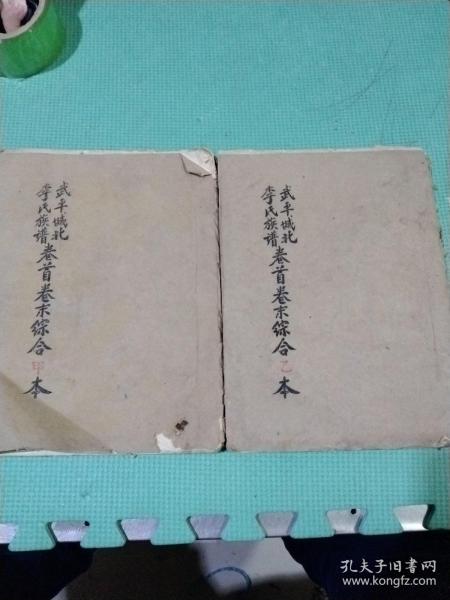 武平城北
李氏族谱
卷首卷末综合甲本
武平城北
李氏族谱
卷首卷末综合乙本
孔夫子旧书网
www.kongfz.com